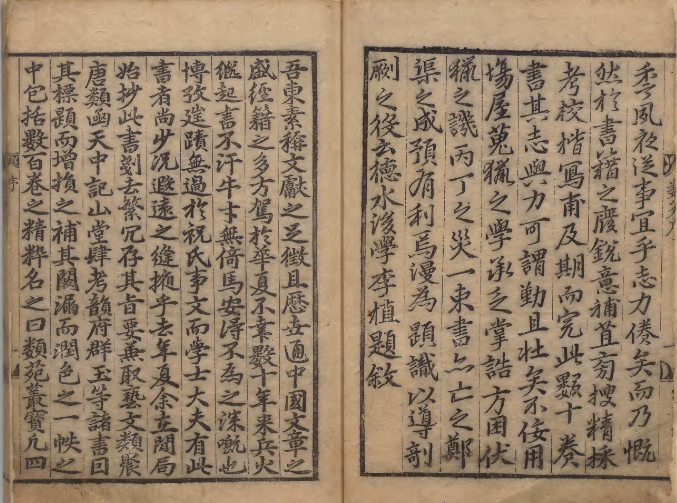 季夙夜從事宜乎志力倦矣而乃慨
然於書籍之廢銳意補苴旁搜精採
考校楷寫甫及期而完此數十卷
書其志與力可謂勤且壯矣不佞用
場屋蒐獵之學承乏掌誥方困伏
獵之譏丙丁之災一束書亦亡之鄭
渠之成預有利焉漫為題識以導剞
劂之後云德水後學李植題敘
吾東素稱文獻之足徵且歷世通中國文章之
盛經籍之多方駕於華夏不幸數十年來兵火
繼起書不汗牛士無倚馬安得不為之深慨也
博攷蹟無過於祝氏事文而學士大夫有此
書者尚少況遐遠之縫掖乎去年夏余在閒局
始抄此書剗去繁冗存其旨要兼取藝文類聚
唐類函天中記山堂肆考韻府群玉等諸書因
其標題而增損之補其闕漏而潤色之一帙之
中包括數百卷之精粹名之曰類苑叢寶凡四